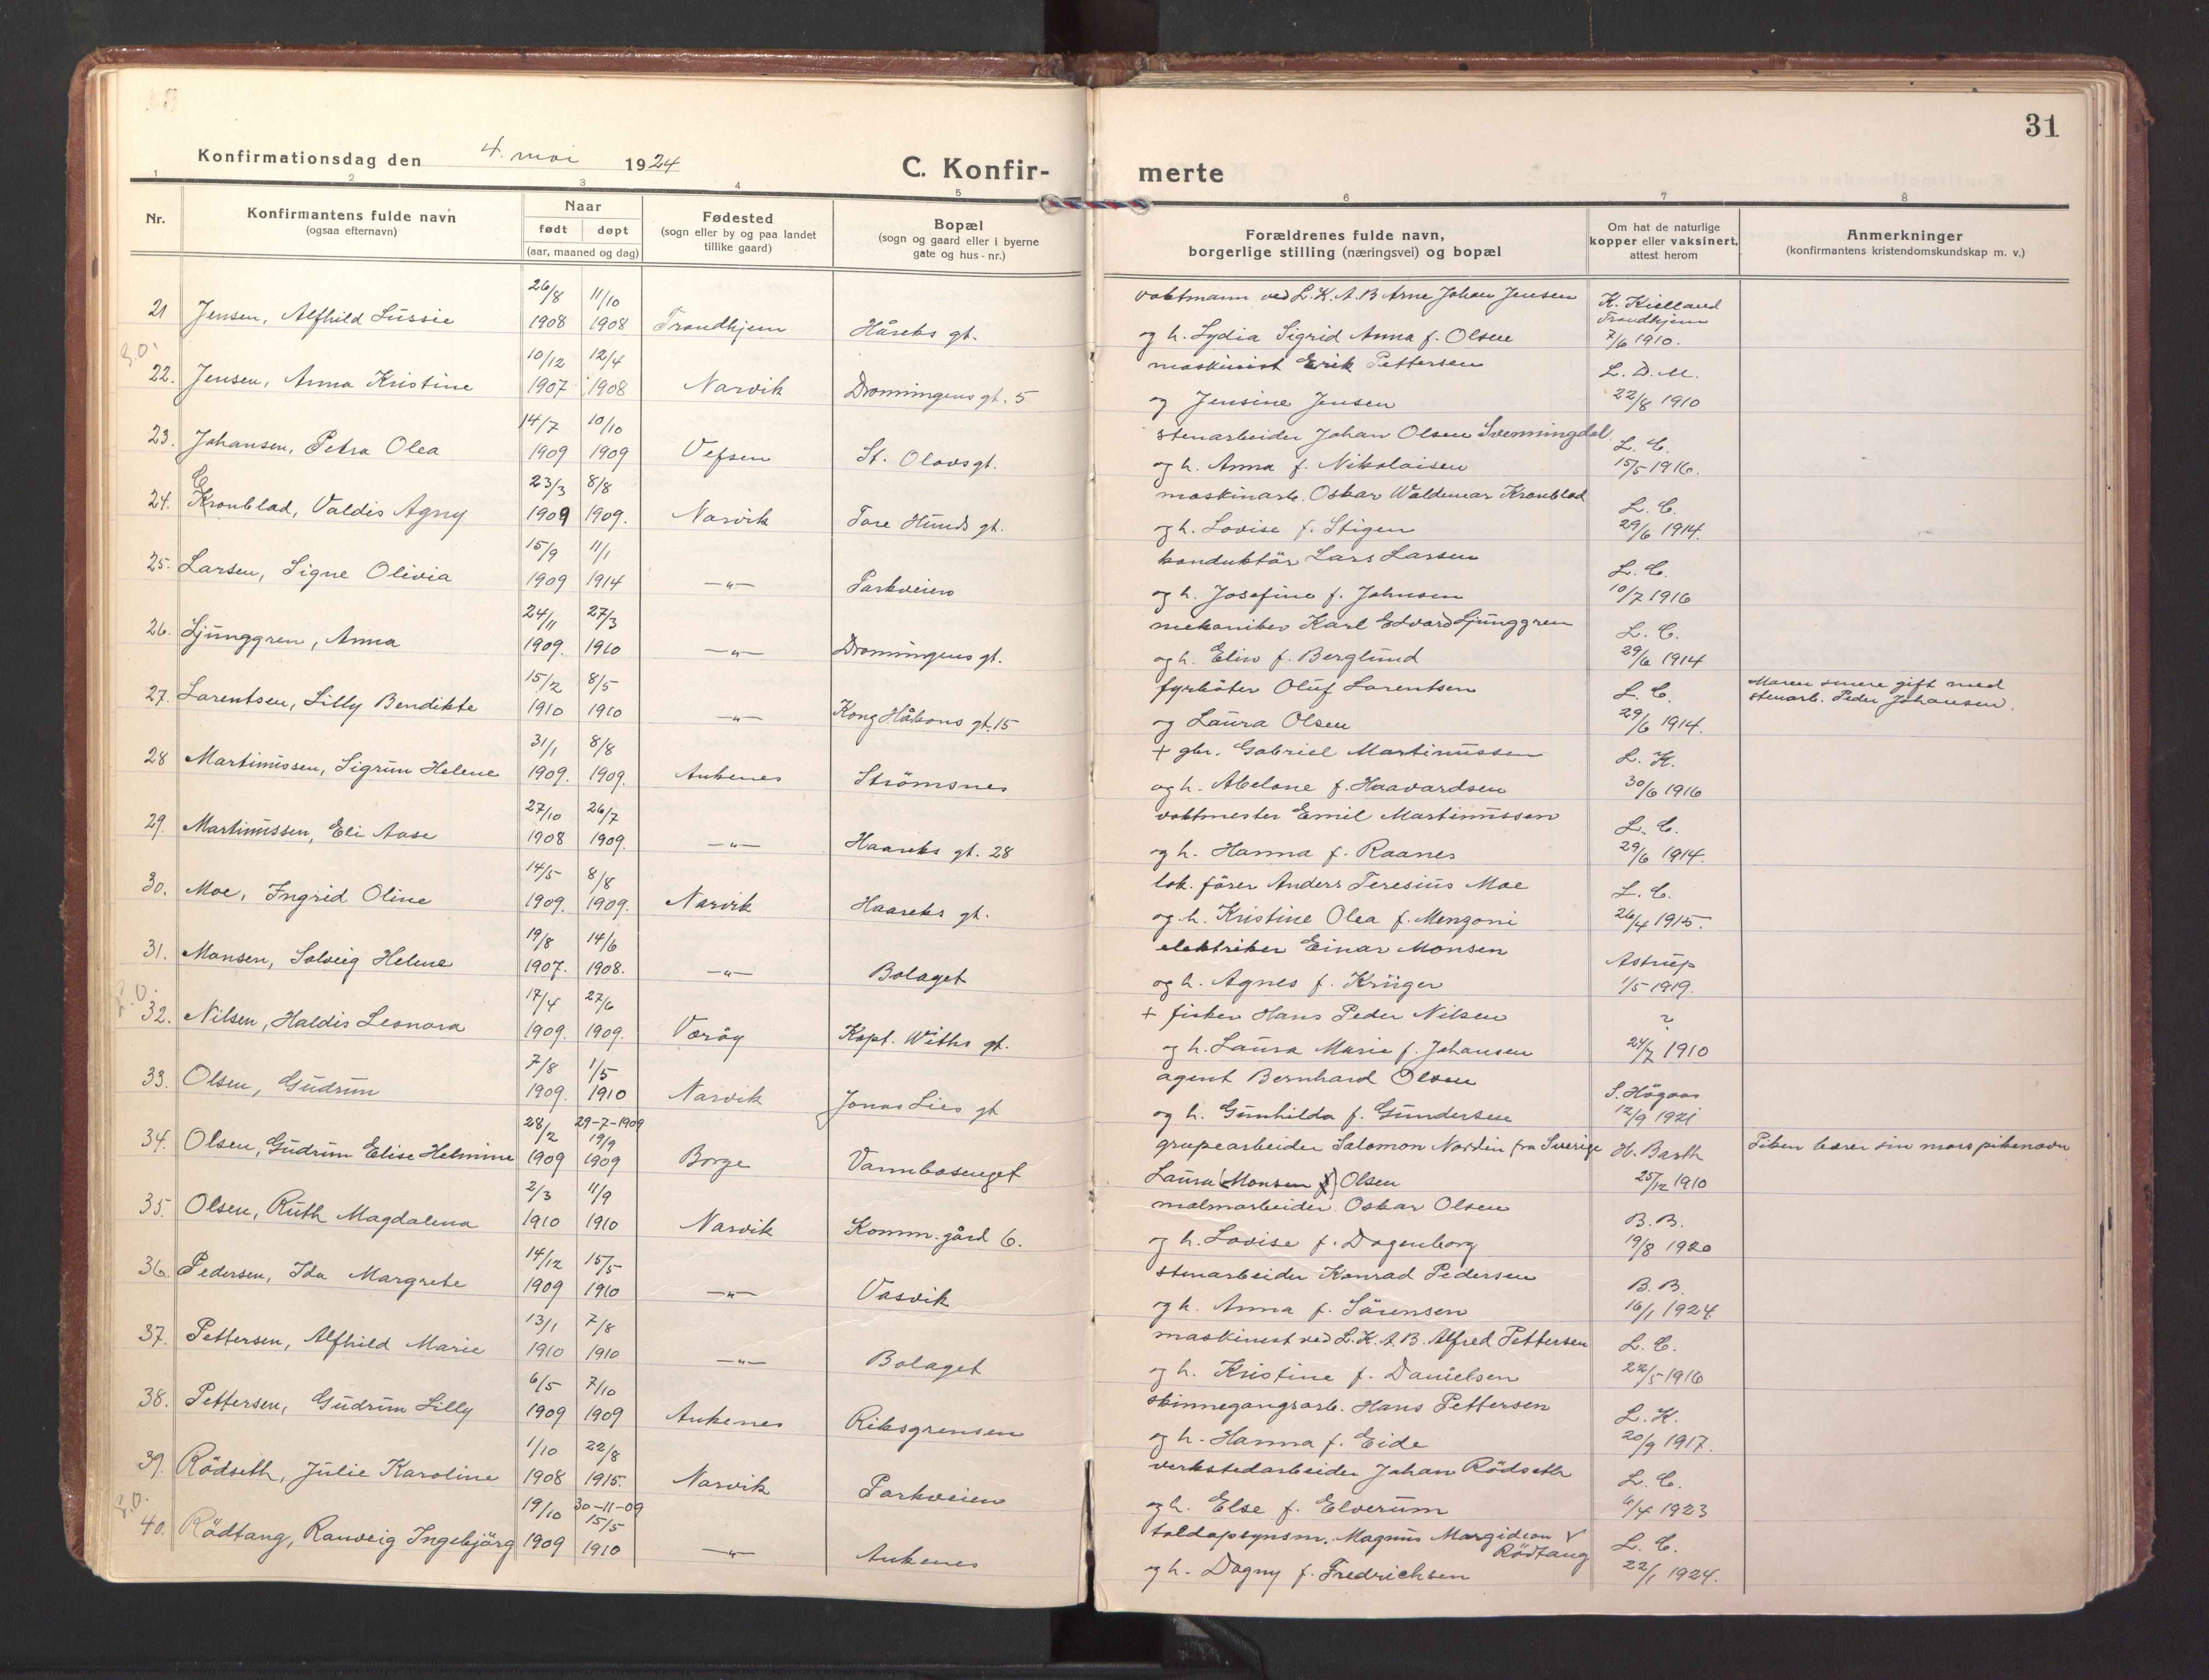 31
Konfirmationsdag den 4. mai 1924
C. Konfirmerte
1 2 3 4 5 6 7 8
Nr.
Konfirmantens fulde navn
(ogsaa efternavn)
Naar
født døpt
(aar, maaned og dag)
Fødested
(sogn eller by og paa landet
tillike gaard)
Bopæl
(sogn og gaard eller i byerne
gate og hus-nr.)
Forældrenes fulde navn,
borgerlige stilling (næringsvei) og bopæl
Om hat de naturlige
kopper eller vaksinert,
attest herom
Anmerkninger
(konfirmantens kristendomskundskap m. v.)
26/8 11/10 vaktmann ved L.K.A.B Arne Johan Jensen K. Kielland
21 Jensen, Alfhild Lussie 1908 1908 Trondhjem Håreks gt. og h. Lydia Sigrid Anna f. Olsen Trondhjem 7/6 1910.
10/12 12/4 maskinist Erik Pettersen L. D. M.
22. Jensen, Anna Kristine 1907 1908 Narvik Dronningens gt. 5 og Jensine Jensen 22/8 1910
14/7 10/10 stenarbeider Johan Olsen Svenningdal L. C.
23. Johansen, Petra Olea 1909 1909 Vefsen St. Olavs gt. og h. Anna f. Nikolaisen 15/5 1916.
23/3 8/8 maskinarb. Oskar Waldemar Kronblad L. C.
24. Kronblad, Valdis Agny 1909 1909. Narvik Tore Hunds gt. og h. Lovise f. Stigen 29/6 1914.
15/9 11/1 konduktör Lars Larsen L. C.
25. Larsen, Signe Olivia 1909 1914 —"— Parkveien og h. Josefine f. Johnsen 10/7 1916
24/11 27/3 mekaniker Karl Edvard Ljunggren L. C.
26. Ljunggren, Anna 1909. 1910 —"— Dronningens gt. og h. Elin f. Berglund 29/6 1914
15/2 8/5 fyrböter Oluf Larentsen L. C. Moren senere gift med
27. Larentsen, Lilly Bendikte 1910 1910 —"— Kong Håkons gt. 15 og Laura Olsen 29/6 1914. stenarb. Peder Johansen.
31/1 8/8 + gbr. Gabriel Martinussen L. K.
28 Martinissen, Sigrun Helene 1909. 1909. Ankenes Strömsnes og h. Abelone f. Haavardsen 30/6 1916
27/10 26/7 vaktmester Emil Martinussen L. C.
29. Martinussen, Eli Aase 1908 1909. —"— Haareks gt. 28 og h. Hanna f. Raanes 29/6 1914.
14/5 8/8 lok. förer Anders Teresius Moe L. C.
30. Moe, Ingrid Oline 1909. 1909. Narvik Haareks gt. og h. Kristine Olea f. Mengoni 26/4 1915.
19/8 14/6 elektriker Einar Monsen Astrup
31. Monsen, Solveig Helene 1907. 1908. —"— Bolaget og h. Agnes f. Krüger 1/5 1919.
17/4 27/6 + fisker Hans Peder Nilsen ?
32. Nilsen, Haldis Leonora 1909. 1909. Væröy Kapt. Withs gt. og h. Laura Marie f. Johansen 24/7 1910
7/8 1/5 agent Bernhard Olsen S. Högaas
33. Olsen, Gudrun 1909. 1910 Narvik Jonas Lies gt og h. Gunhilda f. Gundersen 12/9 1921
28/2 29-7-1909 19/9 grupearbeider Salomon Nordin fra Sverige H. Barth Piken bærer sin mors pikenavn
34. Olsen, Gudrun Elise Helmine 1909 1909 Borge Vannbasenget Laura (Monsen) Olsen 25/12 1910
2/3 11/9 malmarbeider Oskar Olsen B. B.
35. Olsen, Ruth Magdalena 1910 1910 Narvik Komm. gård 6. og h. Lovise f. Dagenborg 19/8 1920
14/12 15/5 stenarbeider Konrad Pedersen B. B.
36. Pedersen, Ida Margrete 1909 1910 —"— Vasvik og h. Anna f. Sörensen 16/1 1924.
13/1 7/8 maskinist ved L.K.A.B. Alfred Pettersen L. C.
37. Pettersen, Alfhild Marie 1910 1910 —"— Bolaget og h. Kristine f. Danielsen 22/5 1916
6/5 7/10 skinnegangsarb. Hans Pettersen L. K.
38. Pettersen, Gudrun Lilly 1909 1909 Ankenes Riksgrensen og h. Hanna f. Eide 20/9 1917.
1/10 22/8 verkstedarbeider Johan Rödseth L. C.
39. Rödseth, Julie Karoline 1908 1915. Narvik Parkveien og h. Else f. Elverum 6/4 1923
19/10 30-11-09 15/5 toldopsynsm. Magnus Margidion Rödtang L. C.
40. Rödtang, Ranveig Ingebjörg 1909 1910 —"— Ankenes og h. Dagny f. Fredrichsen 22/1 1924.